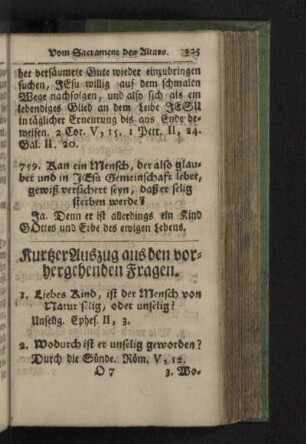 Vom Sacrament des Altars. 325
her versäumete Gute wieder einzubringen
suchen, JEsu willig auf dem schmalen
Wege nachfolgen, und also sich als ein
lebendiges Glied an dem Leibe JESU
in täglicher Erneurung bis ans Ende be-
weisen. 2 Cor. V, 15. 1 Petr. II, 24.
Gal. II. 20.
759. Kan ein Mensch, der also glau-
bet und in JEsu Gemeinschaft lebet,
gewiß versichert seyn, daß er selig
sterben werde?
Ja. Denn er ist allerdings ein Kind
GOttes und Erbe des ewigen Lebens.
Kurtzer Auszug aus den vor-
hergehenden Fragen.
1. Liebes Kind, ist der Mensch von
Natur selig, oder unselig?
Unselig. Ephes. II, 3.
2. Wodurch ist er unselig geworden?
Durch die Sünde. Röm. V, 12.
O 7 3. Wo-